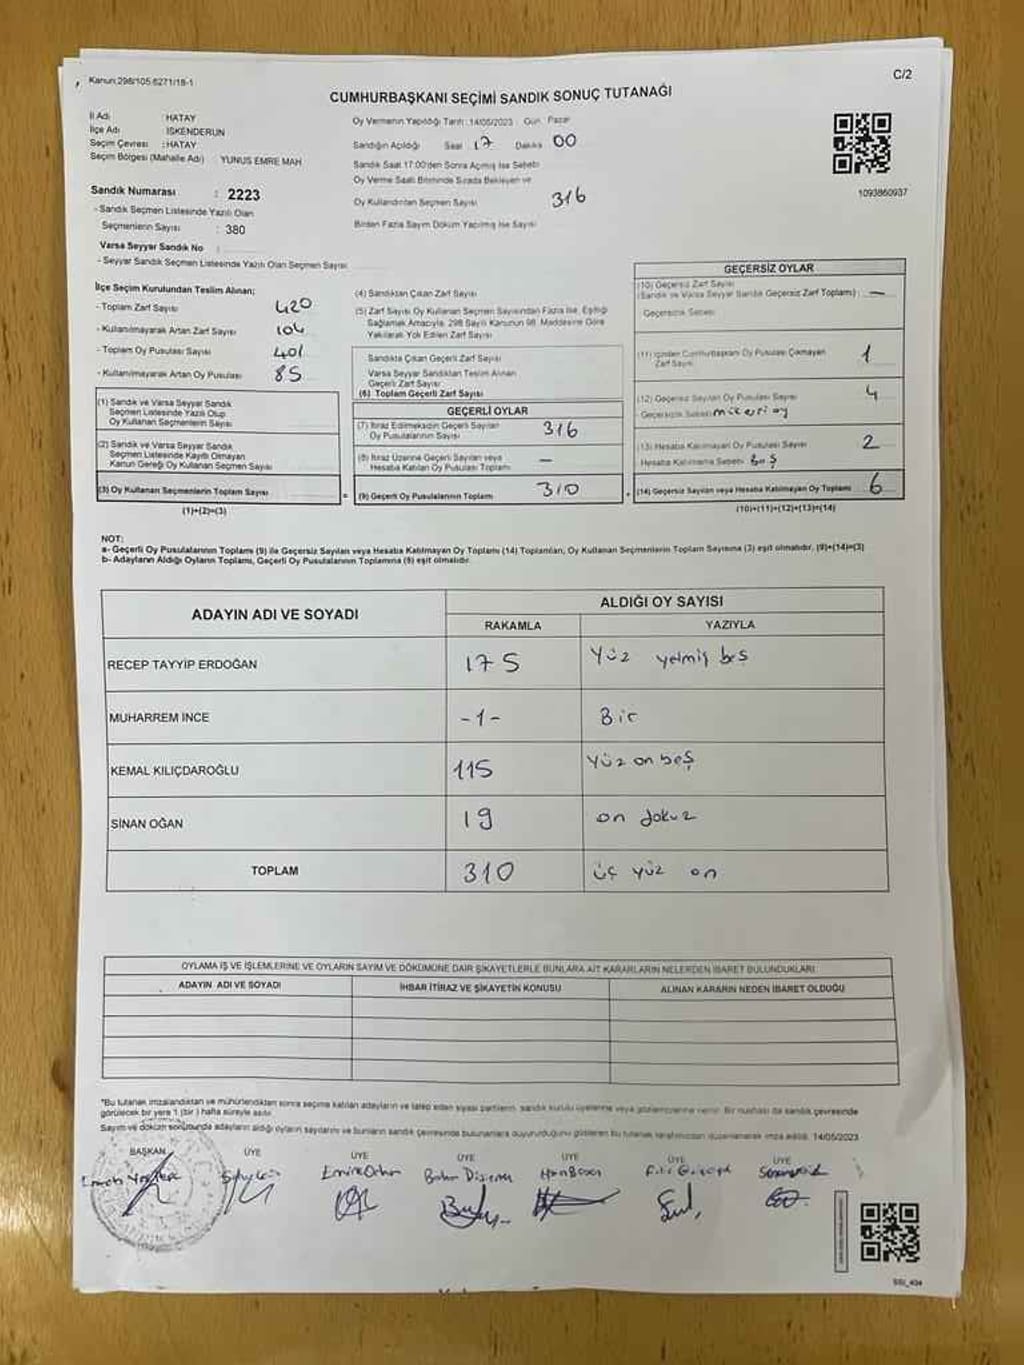 Kanun:298/105.6271/18-1
C/2
CUMHURBAŞKANI SEÇİMİ SANDIK SONUÇ TUTANAĞI
İl Adı : HATAY
İlçe Adı : İSKENDERUN
Seçim Çevresi : HATAY
Seçim Bölgesi (Mahalle Adı) YUNUS EMRE MAH
Sandık Numarası : 2223
- Sandık Seçmen Listesinde Yazılı Olan
Seçmenlerin Sayısı : 380
Varsa Seyyar Sandık No :
- Seyyar Sandık Seçmen Listesinde Yazılı Olan Seçmen Sayısı
Oy Vermenin Yapıldığı Tarih :14/05/2023 Gün: Pazar
Sandığın Açıldığı Saat 17 Dakika 00
Sandık Saat 17:00'den Sonra Açılmış İse Sebebi
Oy Verme Saati Bitiminde Sırada Bekleyen ve
Oy Kullandırılan Seçmen Sayısı 316
Birden Fazla Sayım Döküm Yapılmış İse Sayısı
1093860937
İlçe Seçim Kurulundan Teslim Alınan;
- Toplam Zarf Sayısı 420
- Kullanılmayarak Artan Zarf Sayısı 104
- Toplam Oy Pusulası Sayısı 401
- Kullanılmayarak Artan Oy Pusulası 85
(1) Sandık ve Varsa Seyyar Sandık
Seçmen Listesinde Yazılı Olup
Oy Kullanan Seçmenlerin Sayısı
(2) Sandık ve Varsa Seyyar Sandık
Seçmen Listesinde Kayıtlı Olmayan
Kanun Gereği Oy Kullanan Seçmen Sayısı
(3) Oy Kullanan Seçmenlerin Toplam Sayısı
(1)+(2)=(3)
(4) Sandıktan Çıkan Zarf Sayısı
(5) Zarf Sayısı Oy Kullanan Seçmen Sayısından Fazla İse, Eşitliği
Sağlamak Amacıyla, 298 Sayılı Kanunun 98. Maddesine Göre
Yakılarak Yok Edilen Zarf Sayısı
Sandıkta Çıkan Geçerli Zarf Sayısı
Varsa Seyyar Sandıktan Teslim Alınan
Geçerli Zarf Sayısı
(6) Toplam Geçerli Zarf Sayısı
GEÇERLİ OYLAR
(7) İtiraz Edilmeksizin Geçerli Sayılan
Oy Pusulalarının Sayısı 316
(8) İtiraz Üzerine Geçerli Sayılan veya
Hesaba Katılan Oy Pusulası Toplamı —
= (9) Geçerli Oy Pusulalarının Toplamı 310
GEÇERSİZ OYLAR
(10) Geçersiz Zarf Sayısı
(Sandık ve Varsa Seyyar Sandık Geçersiz Zarf Toplamı) —
Geçersizlik Sebebi
(11) İçinden Cumhurbaşkanı Oy Pusulası Çıkmayan
Zarf Sayısı 1
(12) Geçersiz Sayılan Oy Pusulası Sayısı 4
Geçersizlik Sebebi
(13) Hesaba Katılmayan Oy Pusulası Sayısı 2
Hesaba Katılmama Sebebi Boş
+ (14) Geçersiz Sayılan veya Hesaba Katılmayan Oy Toplamı 6
(10)+(11)+(12)+(13)=(14)
NOT:
a- Geçerli Oy Pusulalarının Toplamı (9) ile Geçersiz Sayılan veya Hesaba Katılmayan Oy Toplamı (14) Toplamları, Oy Kullanan Seçmenlerin Toplam Sayısına (3) eşit olmalıdır. (9)+(14)=(3)
b- Adayların Aldığı Oyların Toplamı, Geçerli Oy Pusulalarının Toplamına (9) eşit olmalıdır.
ADAYIN ADI VE SOYADI ALDIĞI OY SAYISI
RAKAMLA YAZIYLA
RECEP TAYYİP ERDOĞAN 175 Yüz yetmiş beş
MUHARREM İNCE -1- Bir
KEMAL KILIÇDAROĞLU 115 Yüz on beş
SİNAN OĞAN 19 on dokuz
TOPLAM 310 üç yüz on
OYLAMA İŞ VE İŞLEMLERİNE VE OYLARIN SAYIM VE DÖKÜMÜNE DAİR ŞİKAYETLERLE BUNLARA AİT KARARLARIN NELERDEN İBARET BULUNDUKLARI
ADAYIN ADI VE SOYADI İHBAR İTİRAZ VE ŞİKAYETİN KONUSU ALINAN KARARIN NEDEN İBARET OLDUĞU
*Bu tutanak imzalandıktan ve mühürlendikten sonra seçime katılan adayların ve talep eden siyasi partilerin, sandık kurulu üyelerine veya gözlemcilerine verilir. Bir nüshası da sandık çevresinde
görülecek bir yere 1 (bir ) hafta süreyle asılır.
Sayım ve döküm sonucunda adayların aldığı oyların sayılarını ve bunların sandık çevresinde bulunanlara duyurulduğunu gösteren bu tutanak tarafımızdan düzenlenerek imza edildi. 14/05/2023
BAŞKAN ÜYE ÜYE ÜYE ÜYE ÜYE ÜYE
SSİ_404